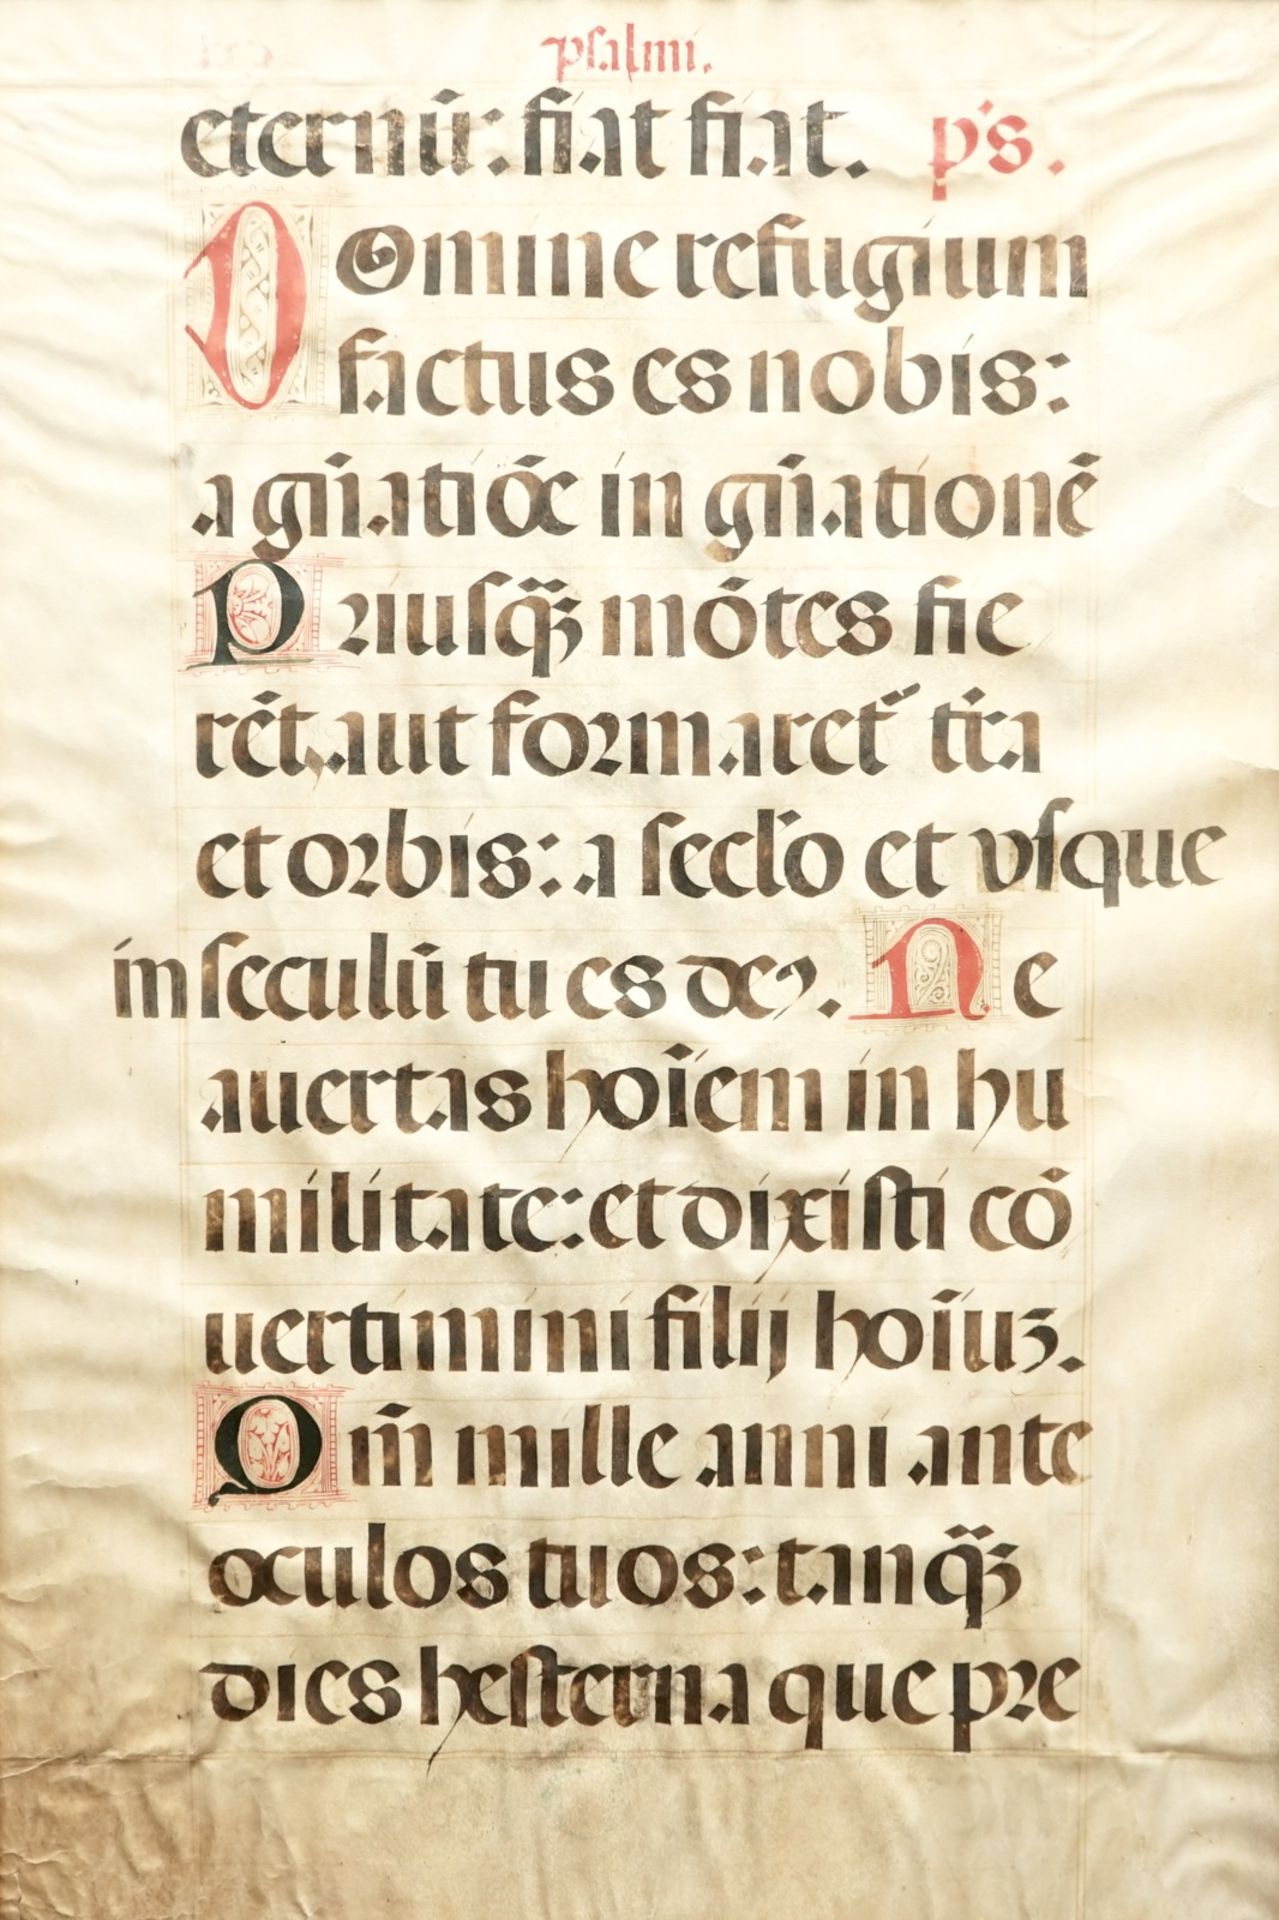 psalmi.
eternū: fiat fiat. p̄s.
Domine refugium
factus es nobis:
a gn̄atiōe in gn̄ationē
Priusq̄ꝫ mōtes fie
rēt, aut formaret᷑ tr̄a
et orbis: a secl̄o et vsque
in seculū tu es deꝰ. Ne
auertas hoīem in hu
militate: et dixisti cō
uertimini filij hoīuꝫ.
Qm̄ mille anni ante
oculos tuos: tanq̄ꝫ
dies hesterna que pre